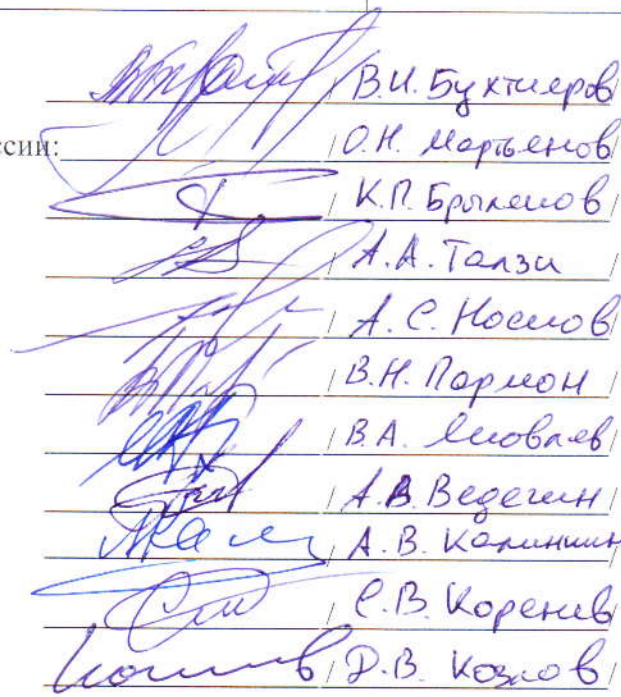 / В.И. Бухтияров /
ссии: / О.Н. Мартьянов /
/ К.П. Брыляков /
/ А.А. Талзи /
/ А.С. Носков /
/ В.Н. Пармон /
/ В.А. Яковлев /
/ А.В. Ведягин /
/ А.В. Калинкин
/ С.В. Коренев /
/ Д.В. Козлов /